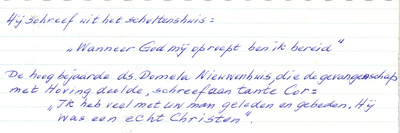 Hij schreef uit het scholtenshuis:
„Wanneer God mij oproept ben ik bereid"
De hoog bejaarde ds. Domela Nieuwenhuis, die de gevangenschap
met Hoving deelde, schreef aan tante Cor=
„Ik heb veel met uw man geleden en gebeden. Hij
was een echt Christen".